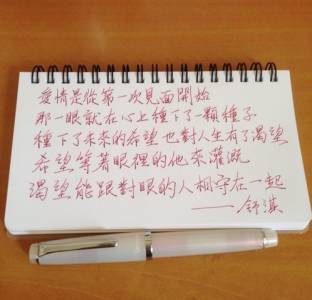 愛情是從第一次見面開始
那一眼就在心上種下了一顆種子
種下了未來的希望也對人生有了渴望
希望等著眼裡的他來灌溉
渴望能跟對眼的人相守在一起
——舒淇